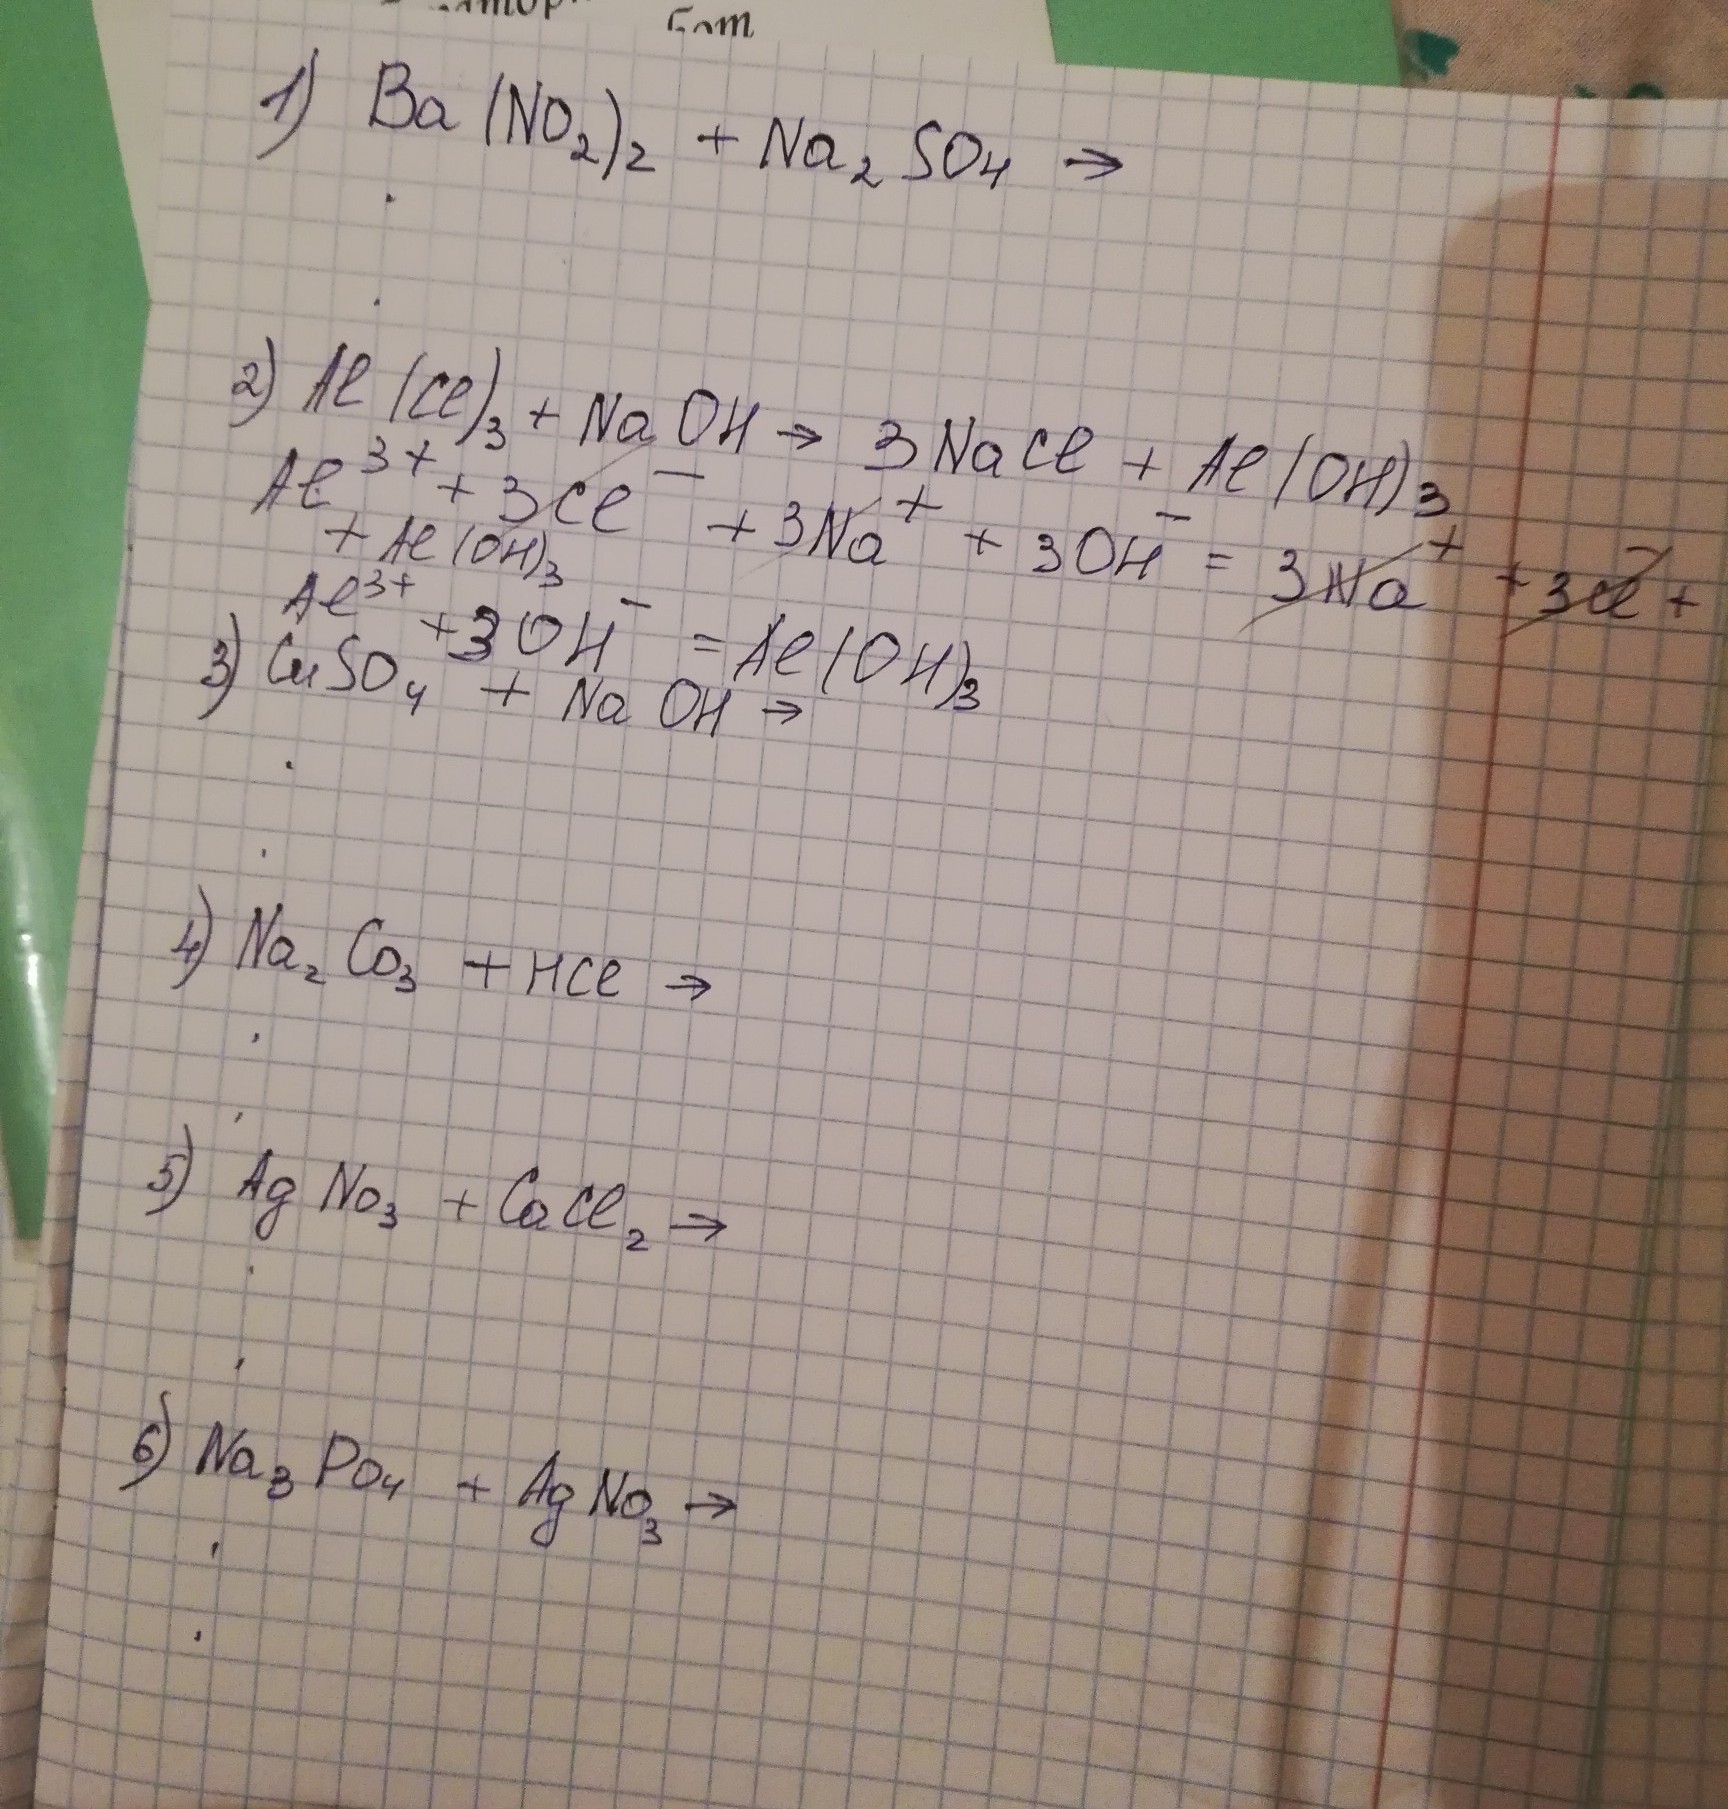 1) Ba(NO₂)₂ + Na₂SO₄ →
2) Al(Cl)₃ + NaOH → 3NaCl + Al(OH)₃
Al³⁺ + 3Cl⁻ + 3Na⁺ + 3OH⁻ = 3Na⁺ + 3Cl⁻ +
+ Al(OH)₃
Al³⁺ + 3OH⁻ = Al(OH)₃
3) CuSO₄ + NaOH →
4) Na₂Co₃ + HCl →
5) AgNo₃ + CaCl₂ →
6) Na₃Po₄ + AgNo₃ →